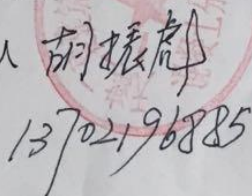 人 胡振彪
13702196885